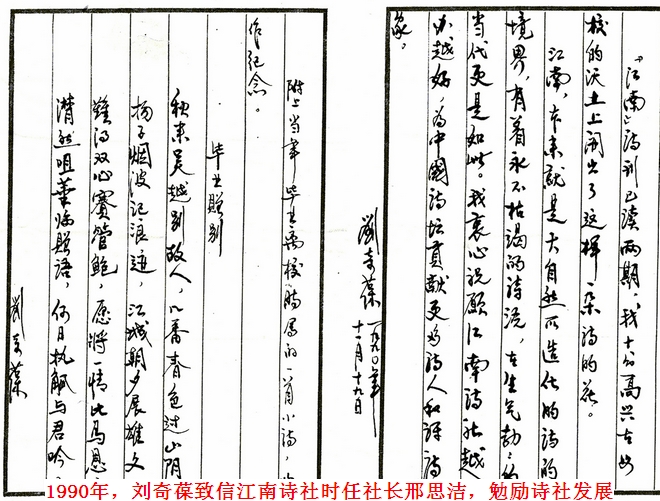 《江南》诗刊已读两期，我十分高兴在母
校的沃土上开出了这样一朵诗的花。
江南，本来就是大自然所造化的诗的
境界，有着永不枯竭的诗流，在生气勃勃的
当代更是如此。我衷心祝愿江南诗社越
办越好，为中国诗坛贡献更多诗人和译诗
家。
刘奇葆
一九九〇年
十一月十九日
附上当年毕业离校时写的一首小诗，
作纪念。
毕业赠别
秋来吴越别故人，几番春色过山阴
扬子烟波记浪迹，江城朝夕展雄文
难得双心赛管鲍，愿将一情比马恩
潸然咀华临赠语，何日执觚与君吟
刘奇葆
1990年，刘奇葆致信江南诗社时任社长邢思洁，勉励诗社发展